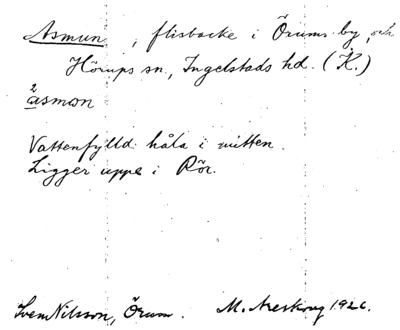 Asmun, flisbacke i Örums by, och
Hörups sn., Ingelstads hd. (K.)
2
asmon
Vattenfylld håla i mitten.
Ligger uppe i Rör.
Sven Nilsson, Örum. M. Areskog 1926.